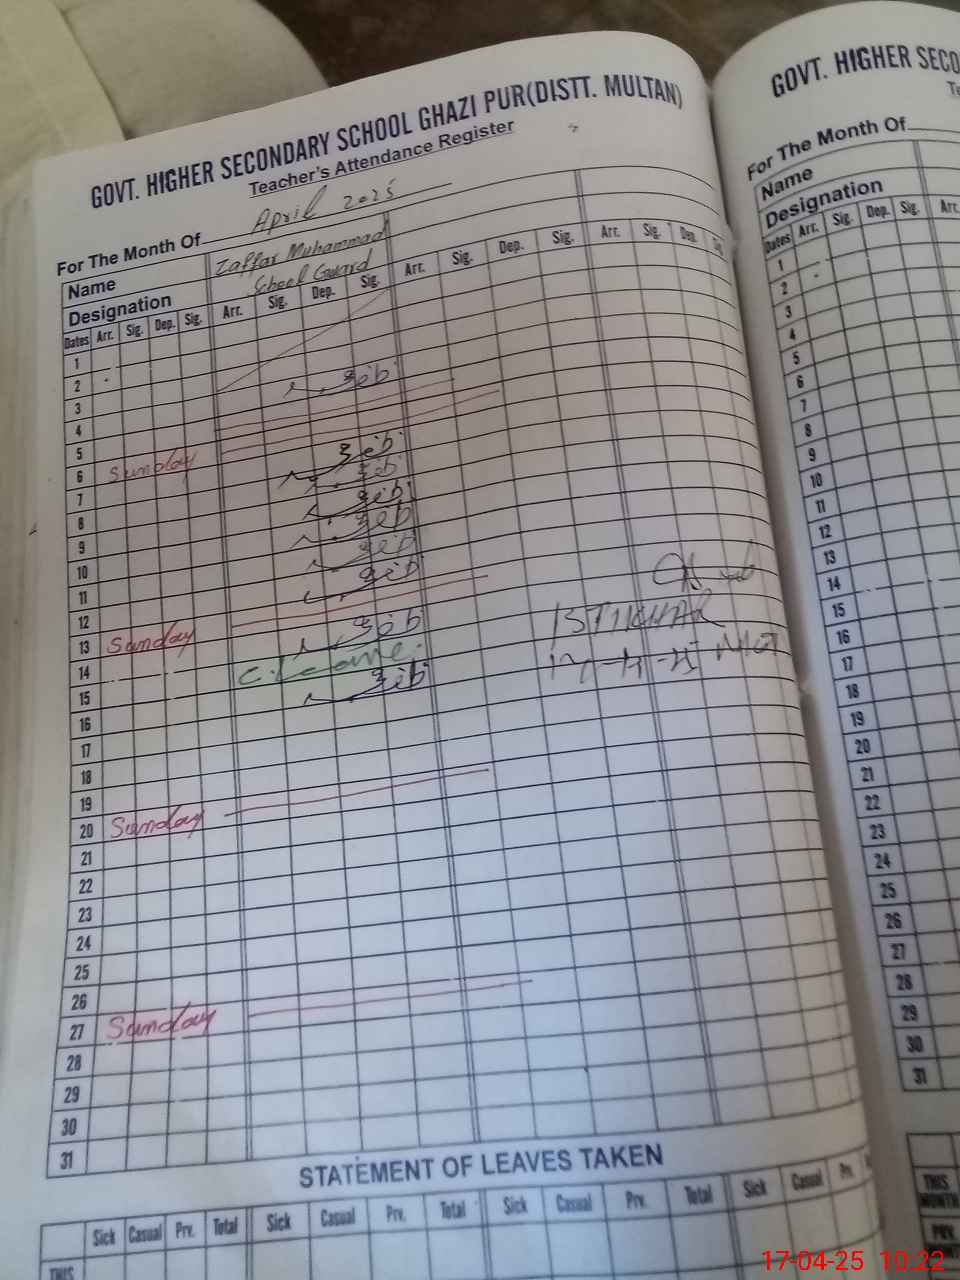 GOVT. HIGHER SECONDARY SCHOOL GHAZI PUR(DISTT. MULTAN)
Teacher's Attendance Register
For The Month Of April 2025
Name Zaffar Muhammad
Designation School Guard
Dates Arr. Sig. Dep. Sig. Arr. Sig. Dep. Sig. Arr. Sig. Dep. Sig. Arr. Sig. Dep. Sig.
1
2
3
4
5
6 Sunday
7
8
9
10
11
12
13 Sunday
14
15 C. Leave.
16
17
18
19
20 Sunday
21
22
23
24
25
26
27 Sunday
28
29
30
31
STATEMENT OF LEAVES TAKEN
Sick Casual Prv. Total Sick Casual Prv. Total Sick Casual Prv. Total Sick Casual Prv.
THIS
GOVT. HIGHER SECO
For The Month Of
Name
Designation
Dates Arr. Sig. Dep. Sig. Arr.
1
2
3
4
5
6
7
8
9
10
11
12
13
14
15
16
17
18
19
20
21
22
23
24
25
26
27
28
29
30
31
THIS
MONTH
PRV.
17-04-25 10:22